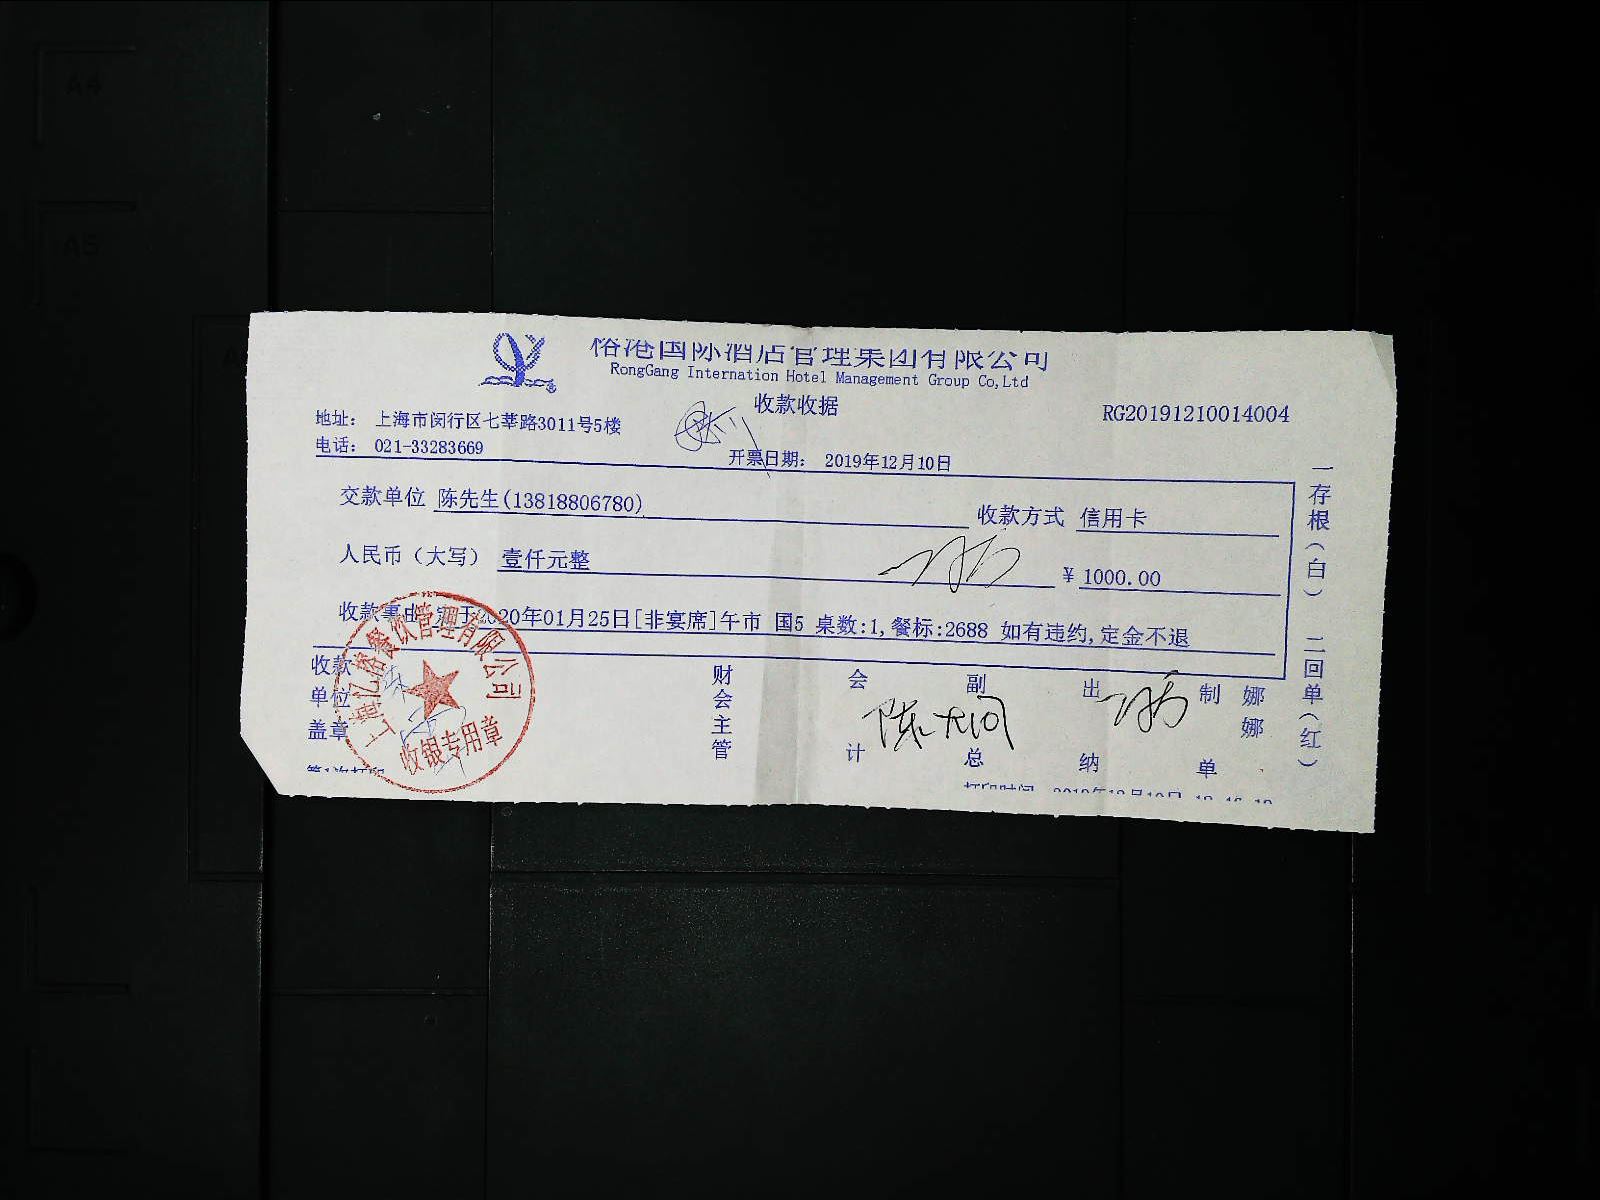 裕港国际酒店管理集团有限公司
RongGang Internation Hotel Management Group Co,Ltd
收款收据
RG20191210014004
地址： 上海市闵行区七莘路3011号5楼
电话： 021-33283669
开票日期： 2019年12月10日
交款单位 陈先生(13818806780)
收款方式 信用卡
人民币（大写） 壹仟元整
¥ 1000.00
收款事由 定于2020年01月25日[非宴席]午市 国5 桌数:1,餐标:2688 如有违约,定金不退
收款单位盖章
财会主管
会计
副总
出纳
制单
娜娜
上海亿裕餐饮管理有限公司
收银专用章
第1次打印
打印时间 2019年12月10日
一存根（白） 二回单（红）
A4
A5